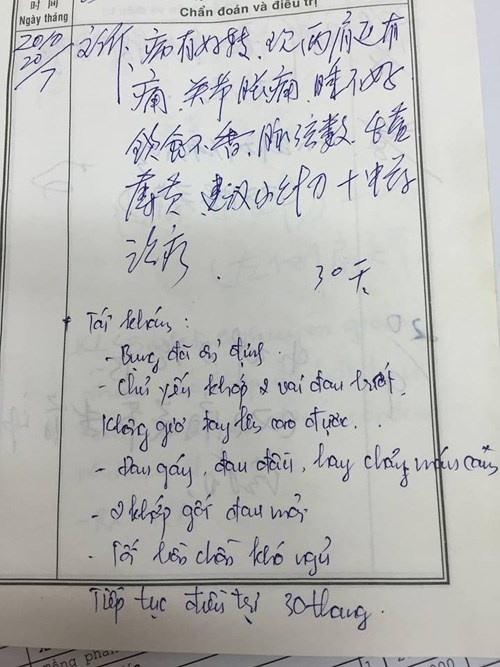 时间
Ngày tháng
Chẩn đoán và điều trị
2010
20/7
复诊、病有好转、现两肩还有
痛、关节胀痛、睡不好
饮食不香、脉弦数、舌苔
薄黄、建议小针刀十中药
治疗. 30天
Tái khám:
- Bụng đã ổn định.
- Chủ yếu khớp 2 vai đau buốt,
không giơ tay lên cao được.
- Đau gáy, đau đầu, hay chảy máu cam
- 2 khớp gối đau mỏi
- Tối bồn chồn khó ngủ
Tiếp tục điều trị 30 thang.